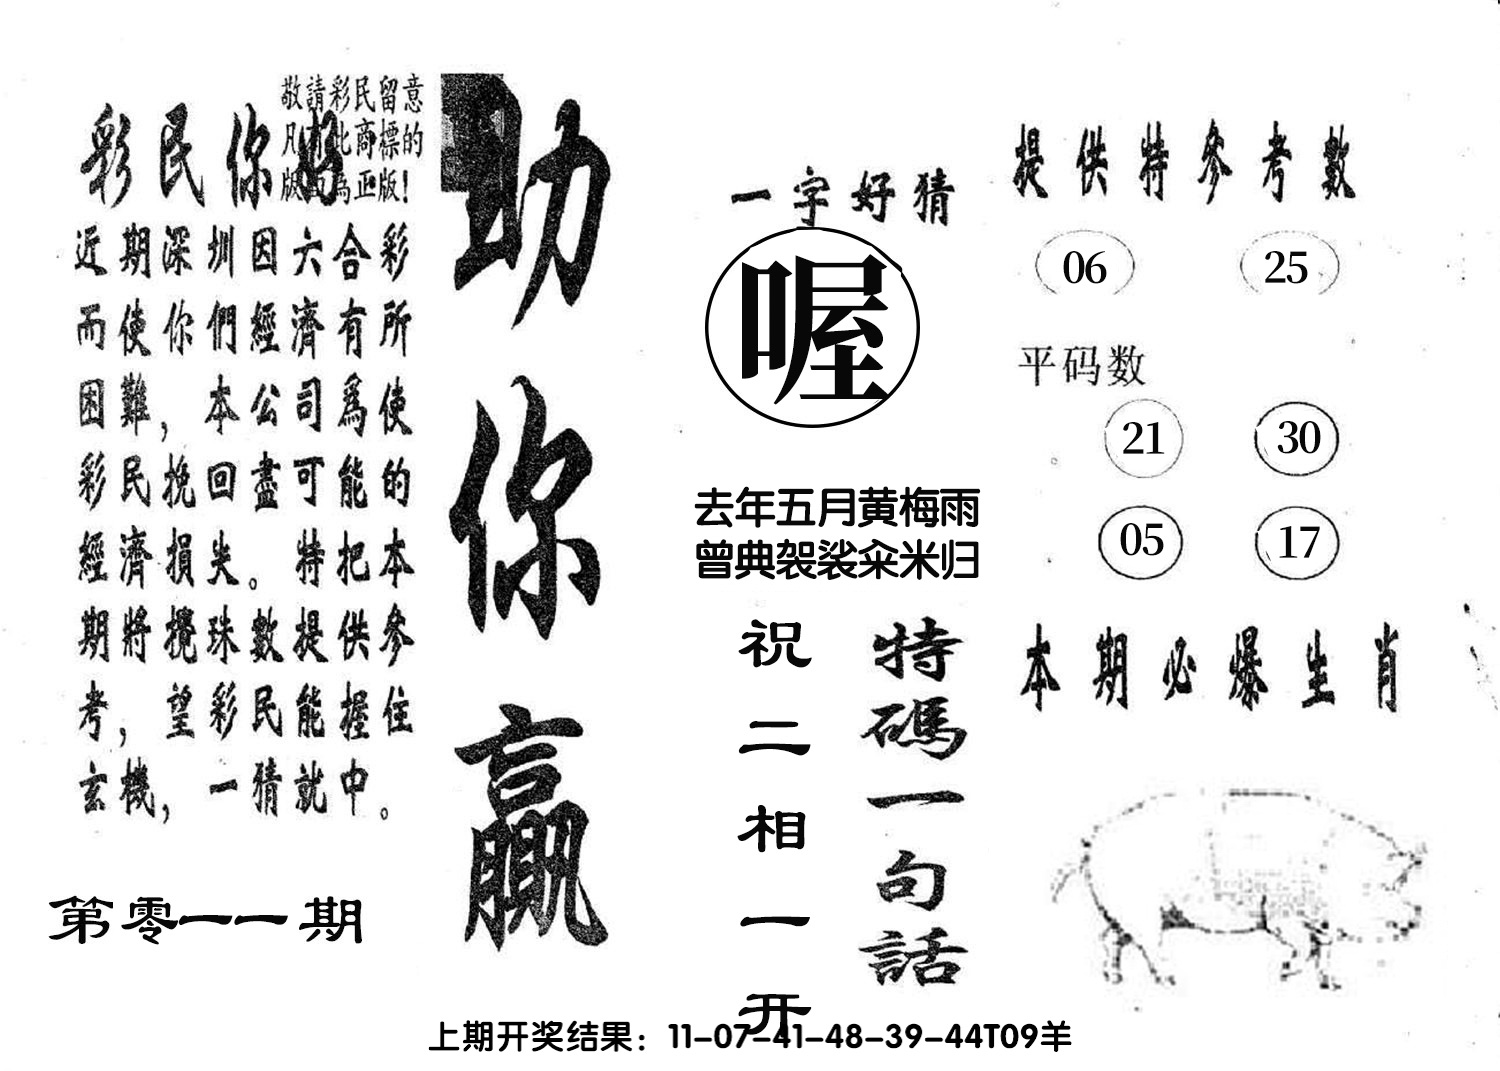 敬請彩民留意
凡有此商標的
版面為正版!
彩民你好
近期深圳因六合彩
而使你們經濟有所
困難，本公司爲使
彩民挽回盡可能的
經濟損失。特把本
期將攪珠數提供參
考，望彩民能握住
玄機，一猜就中。
第零一一期
助你贏
一字好猜
喔
去年五月黄梅雨
曾典袈裟籴米归
特碼一句話
祝二相一开
提供特參考數
06 25
平码数
21 30
05 17
本期必爆生肖
上期开奖结果：11-07-41-48-39-44T09羊